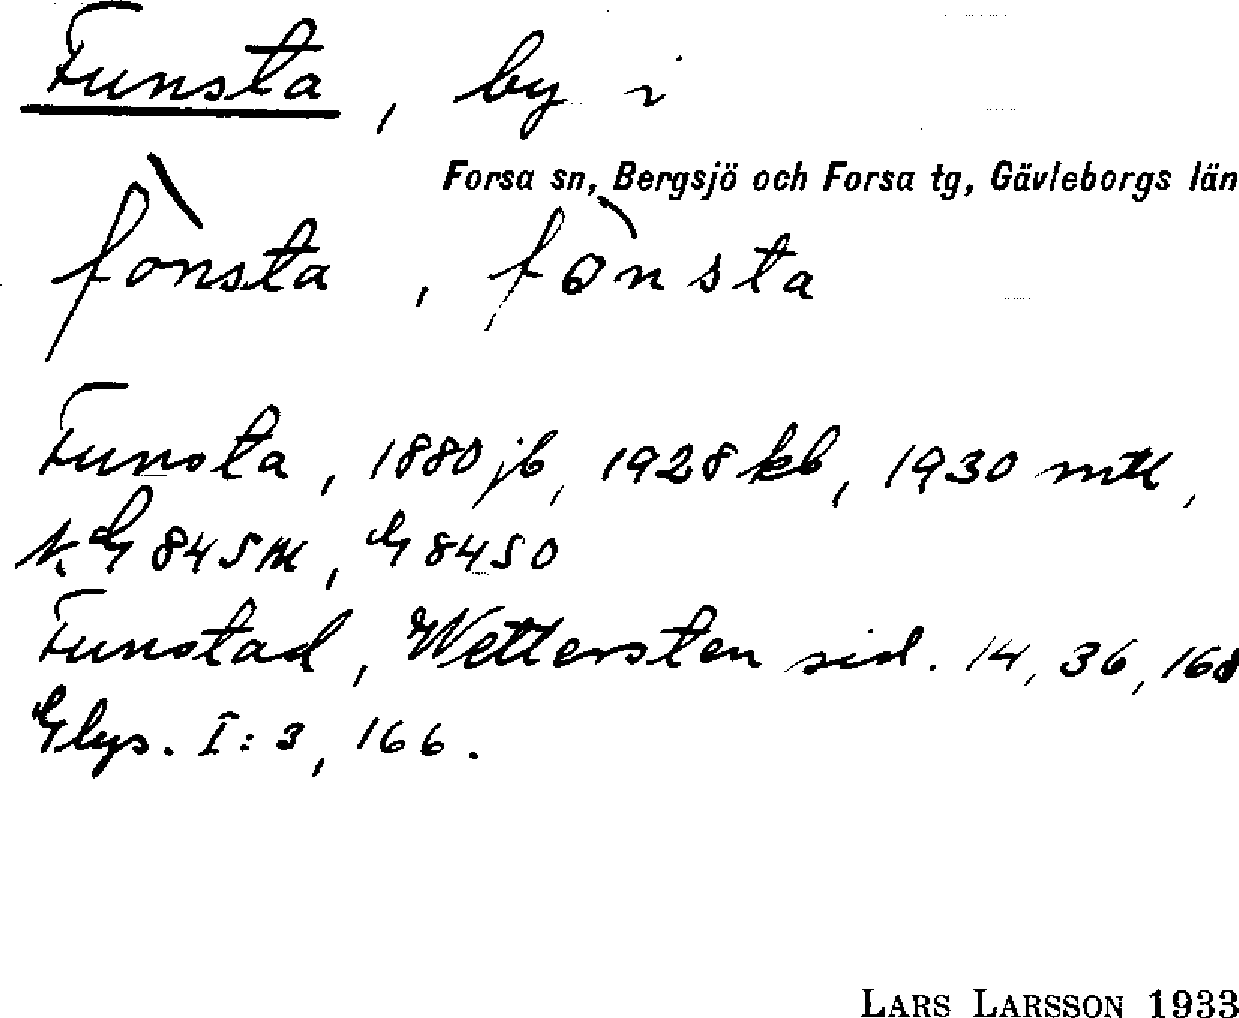 Funsta, by i
Forsa sn, Bergsjö och Forsa tg, Gävleborgs län
fònsta, fònsta
Funsta, 1880 jb, 1928 kb, 1930 mtl,
845 M, 845 O
Funstad, Wettersten sid. 14, 36, 168
Glys. I: 3, 166.
LARS LARSSON 1933